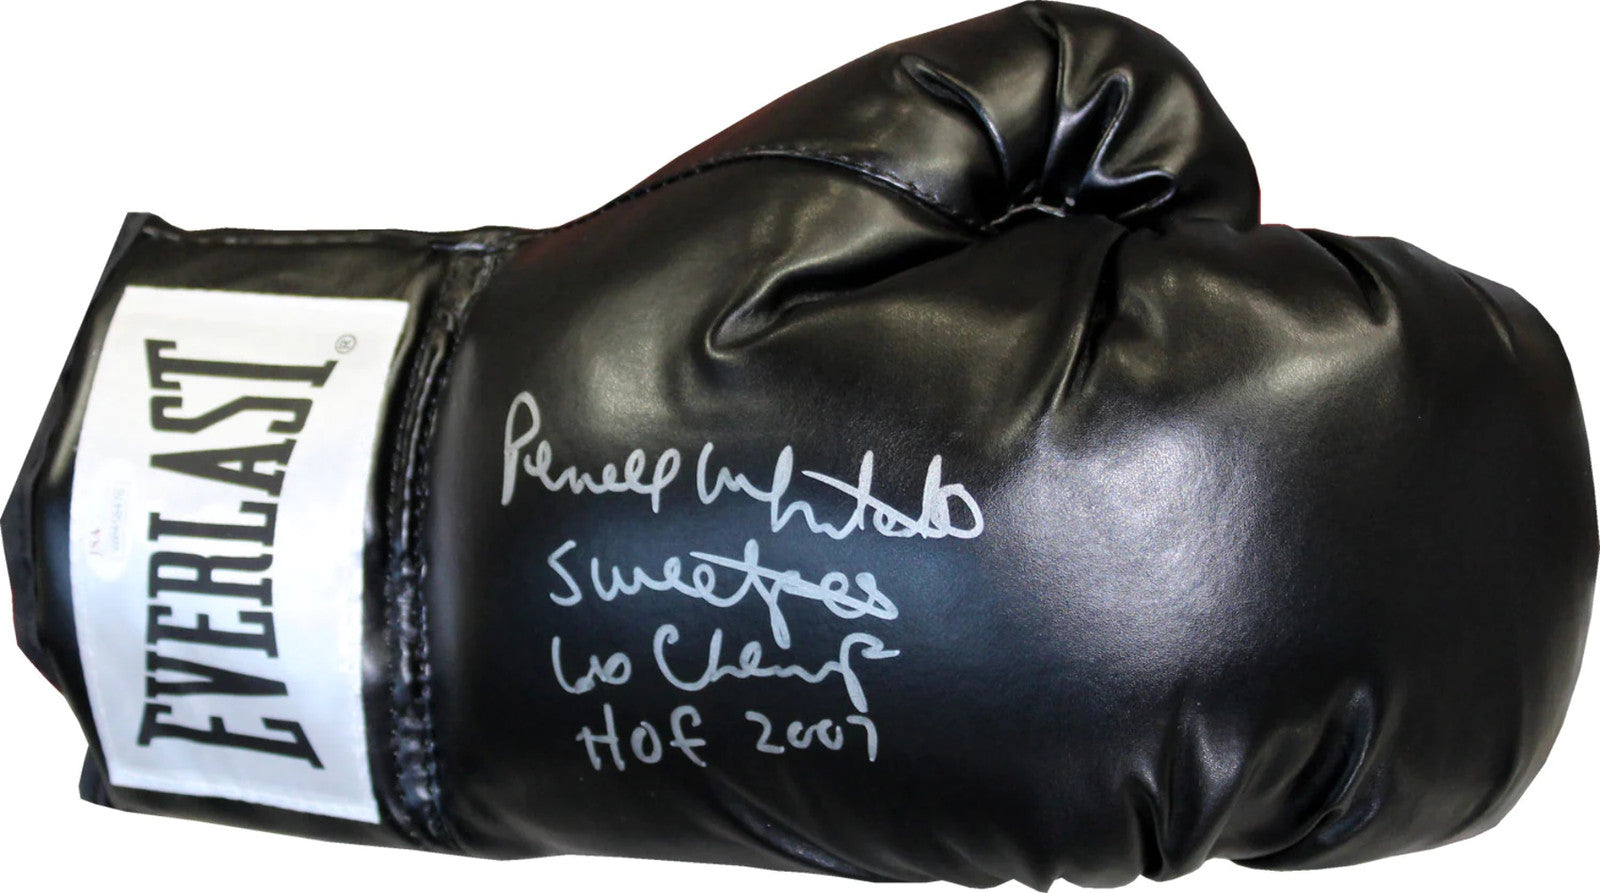 EVERLAST®
JSA
Pernell Whitaker
Sweetpea
60 Champ
HOF 2007